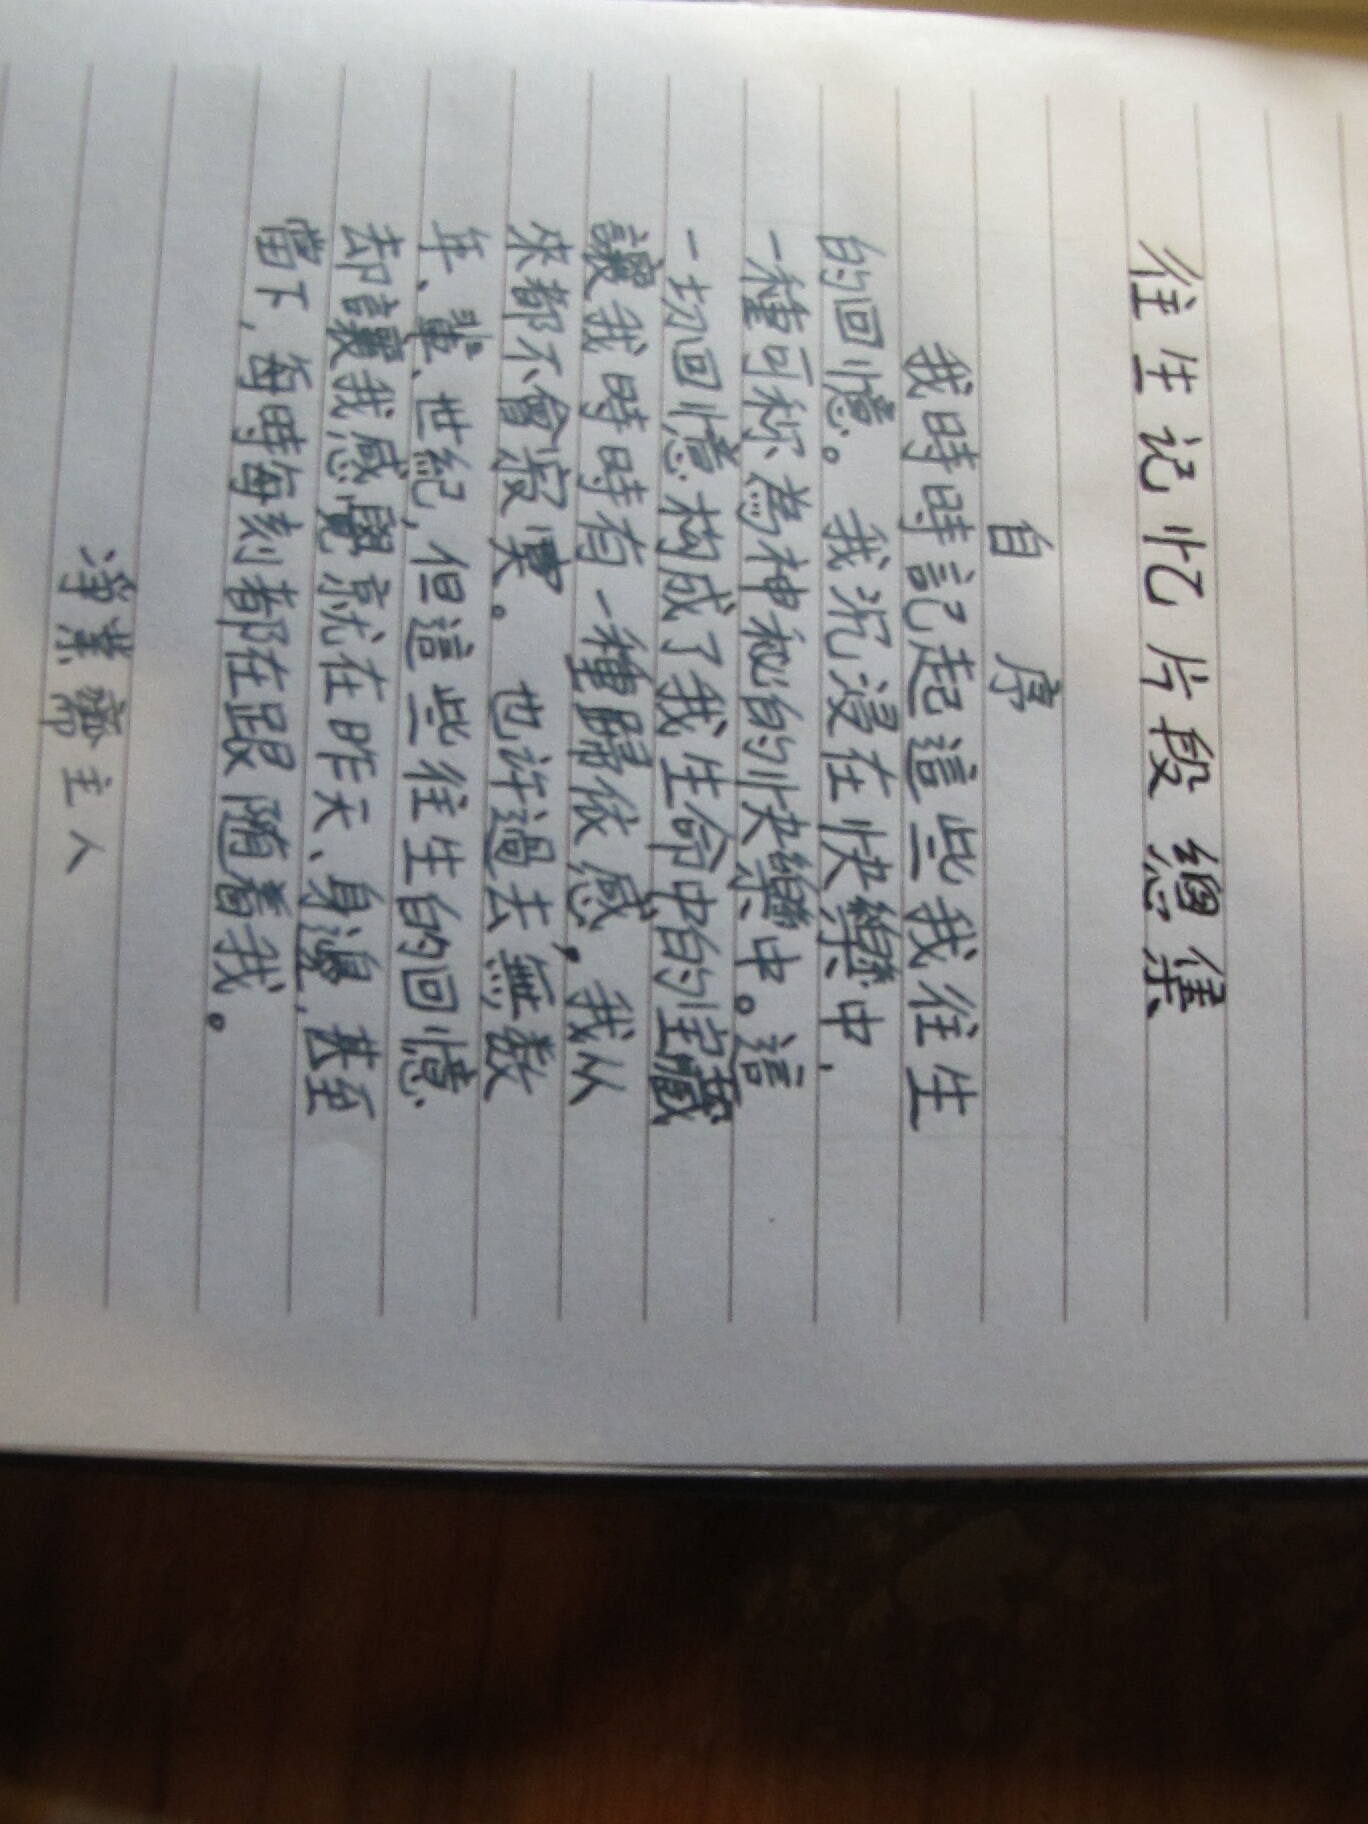 往生记忆片段總集
自序
我時時記起這些我往生
的回憶。我沉浸在快樂中，
一種可称為神秘的快樂中。這
一切回憶构成了我生命中的宝藏
讓我時時有一種歸依感，我从
來都不會寂寞。也许過去無数
年、輩、世紀，但這些往生的回憶
却讓我感覺就在昨天、身邊，甚至
當下，每時每刻都在跟随着我。
淨業齋主人